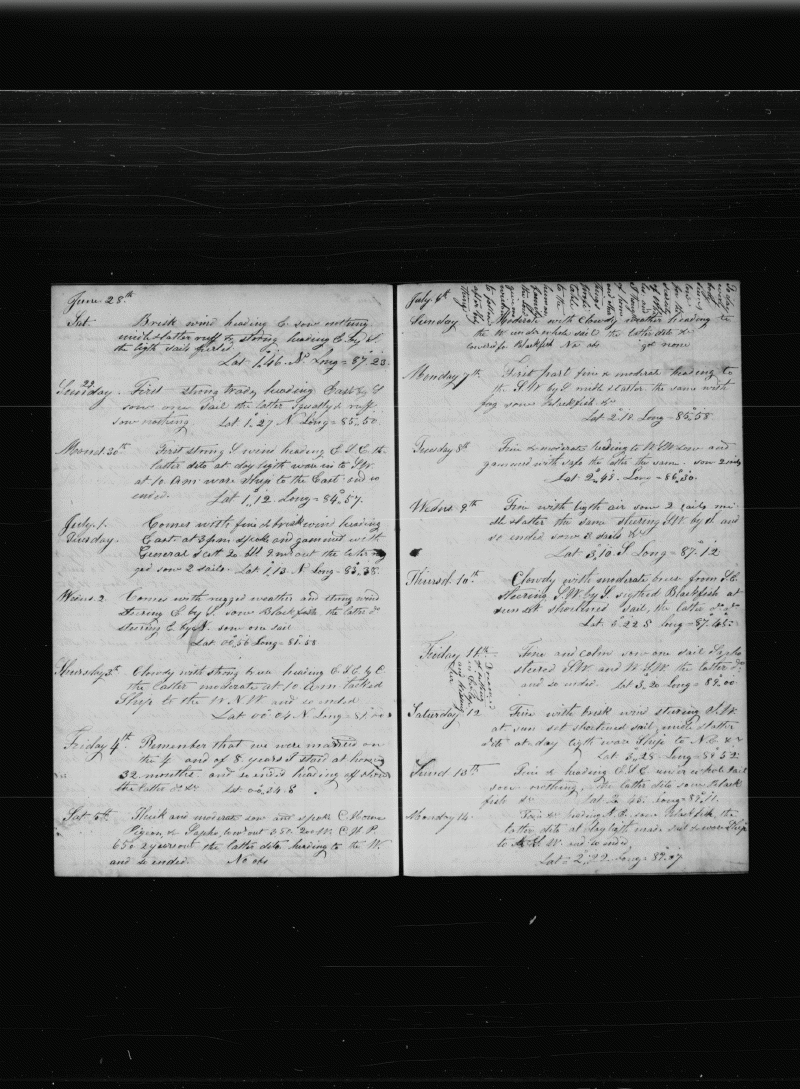 June 28th
Sat. Brisk wind heading E saw nothing
middle & latter ruff & strong heading E. by S
the ligth sails furled
Lat 1,,46 N Long = 87°23
29
Sunday. First strong trades heading East by S
saw one sail the latter squally & ruff
saw nothing Lat 1°27 N Long = 85,,50
Mond. 30th First strong S wind heading E S E the
latter dito at day ligth ware in to S.W.
at 10 Am ware Ship to the East and so
ended. Lat 1,,12 Long = 84°57
July. 1. Comes with fine & brisk wind heading
Tuesday. East. at 3 pm. spoke and gammed with
General Scott 20 months out the latter
saw 2 sails. Lat 1,,13 N Long = 83,,38
Weds. 2 Comes with rugged weather and strong wind
steering E by S. saw Blackfish the latter do
steering E by S. saw one sail
Lat 00°56 Long = 81°58
Thursday 3d Clowdy with strong heading E S E by E
the latter moderate at 10 Am tacked
Ship to the W N W and so ended
Lat 00°04 N Long = 81°00
Friday 4th Remember that we were married on
the 4 and of 8 years I staed at home
32 months. and so ended heading off shore
the latter do do. Lat. 00,,24 S.
Sat. 5th Thick and moderate saw and spoke C. Mowee
Pigeon, & Sapho, two out
650 2 years out the latter dito heading to the W.
and so ended. No obs
July 6th
Sunday Moderate with Clowdy weather heading to
the W under whole sail. the latter dito &
lowered for Blackfish No obs got none
Monday 7th First part fine & moderate heading to
the S.W. by S midle & latter the same with
fog some Blackfish &c
Lat 2.12 Long = 85°58
Tuesday 8th Fine & moderate heading to W.S.W saw and
gammed with Sapho the latter the same. saw 2 sails
Lat. 2°48. Long = 86°30
Weds. 9th Fine with ligth air saw 2 sails mi-
dle & latter the same steering S.W. by S and
so ended saw 3 sails &c
Lat 3,,10. S Long = 87=12
Thursd. 10th Clowdy with moderate breese from S.E.
steering S.W. by S sigthed Blackfish at
sun set shortened sail, the latter do do
Lat. 3°22 S Long = 87°45
Friday 11th Fine and calm saw one sail Sapho
steered S.W. and W.S.W. the latter do.
and so ended. Lat 3,,20 Long = 89°00
Saturday 12 Fine with brisk wind steering S.W.
at sun set shortened sail, midle & latter
dito at day ligth ware Ship to N.E &c
Lat 3,,28 Long = 89°52
Sund 13th Fine & heading E.S.E. under whole sail
saw nothing. the latter dito saw Black
fish &c Lat. 45. Long = 89°11
Monday 14. Fine & heading saw Blackfish, the
latter dito at daylight made sail & ware Ship
to S. W. and so ended
Lat = 2°22. Long = 89°07